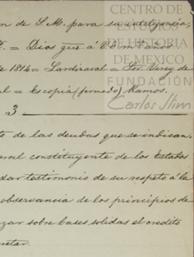 CENTRO DE
ESTUDIOS
DE HISTORIA
DE MÉXICO
FUNDACIÓN
Carlos Slim
on de S. M. para su inteligencia,
Dios que á
de 1814 = Lardizaval =
al = Es copia (firmado) Ramos.
3
to de las deudas que se indican.
eral constituyente de los Estados
dar testimonio de su respeto á la
observancia de los principios de
zar sobre bases solidas el credito